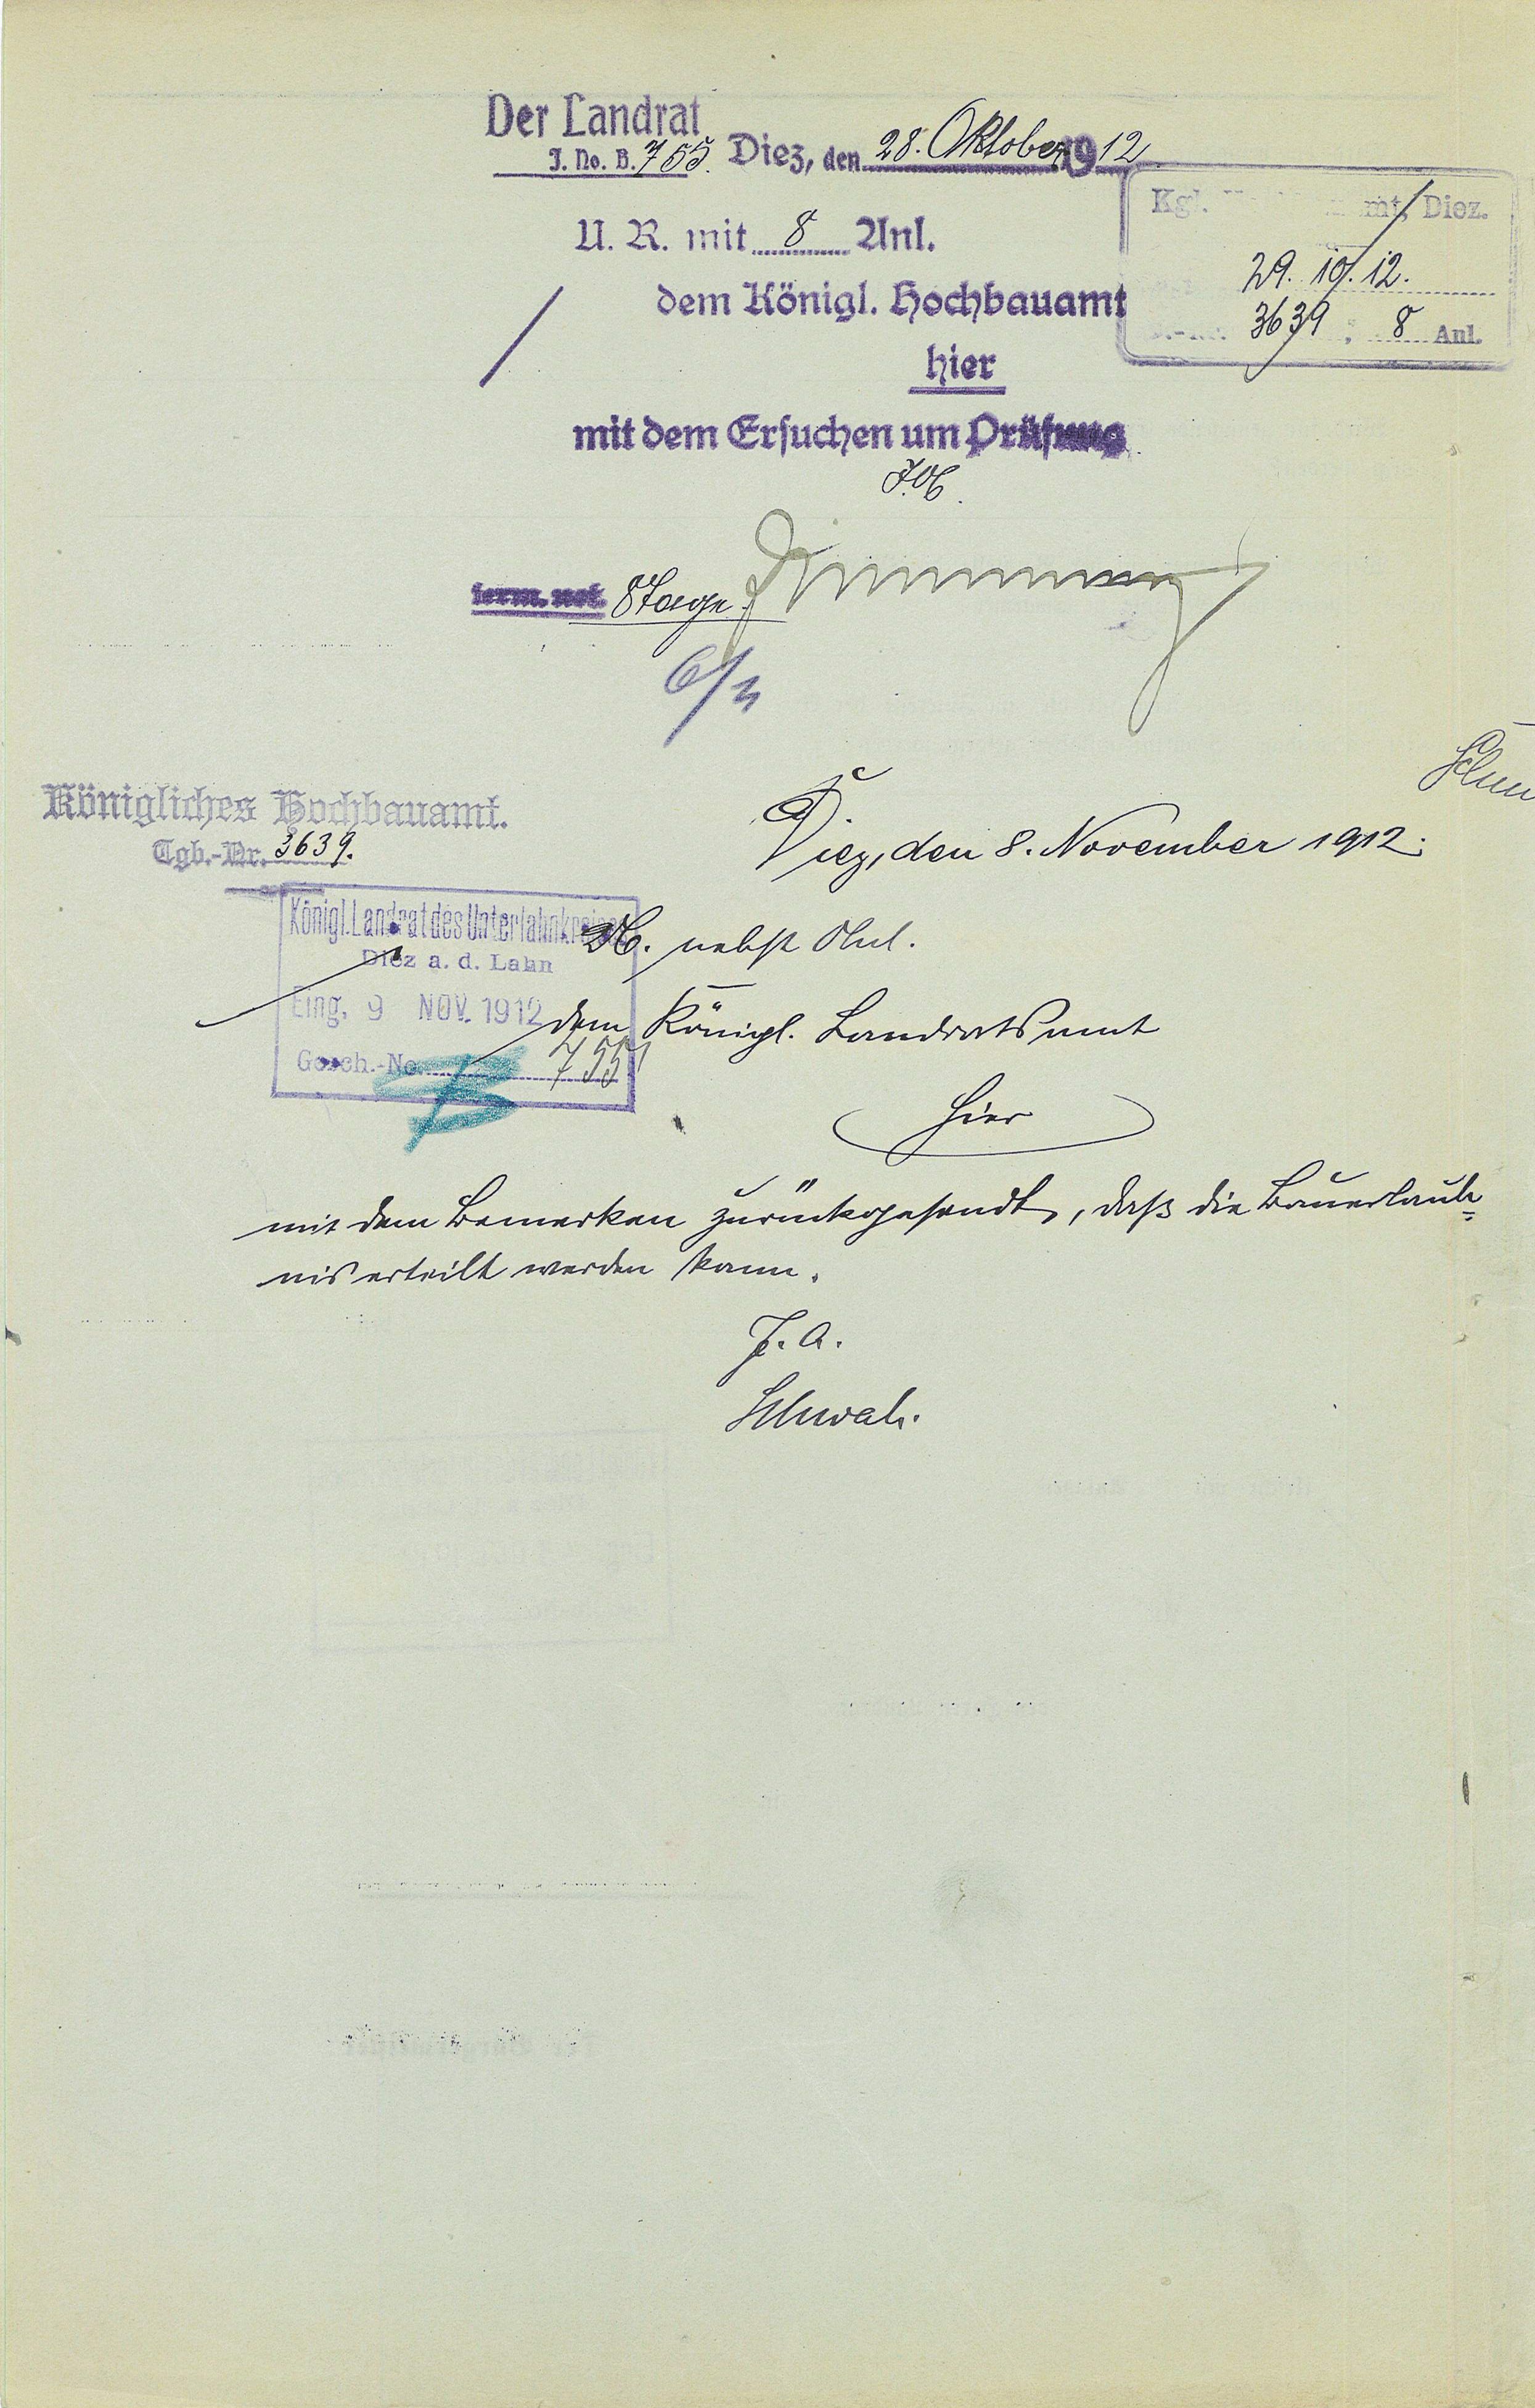 Der Landrat
J. No. B. 755. Diez, den 28. Oktober 1912
Kgl. amt, Diez.
29. 10. 12.
3639, 8 Anl.
U. R. mit 8 Anl.
dem Königl. Hochbauamt
hier
mit dem Ersuchen um Prüfung
term. not. 8 Tage.
6/11
Königliches Hochbauamt.
Tgb.-Nr. 3639.
Diez, den 8. November 1912.
Königl. Landrat des Unterlahnkreises
Diez a. d. Lahn
Eing. 9 NOV. 1912
Gesch.-No. 755
B
nebst Anl.
dem Königl. Landratsamt
hier
mit dem Bemerken zurückgesandt, daß die Bauerlaub=
nis erteilt werden kann.
J. A.
Schwab.